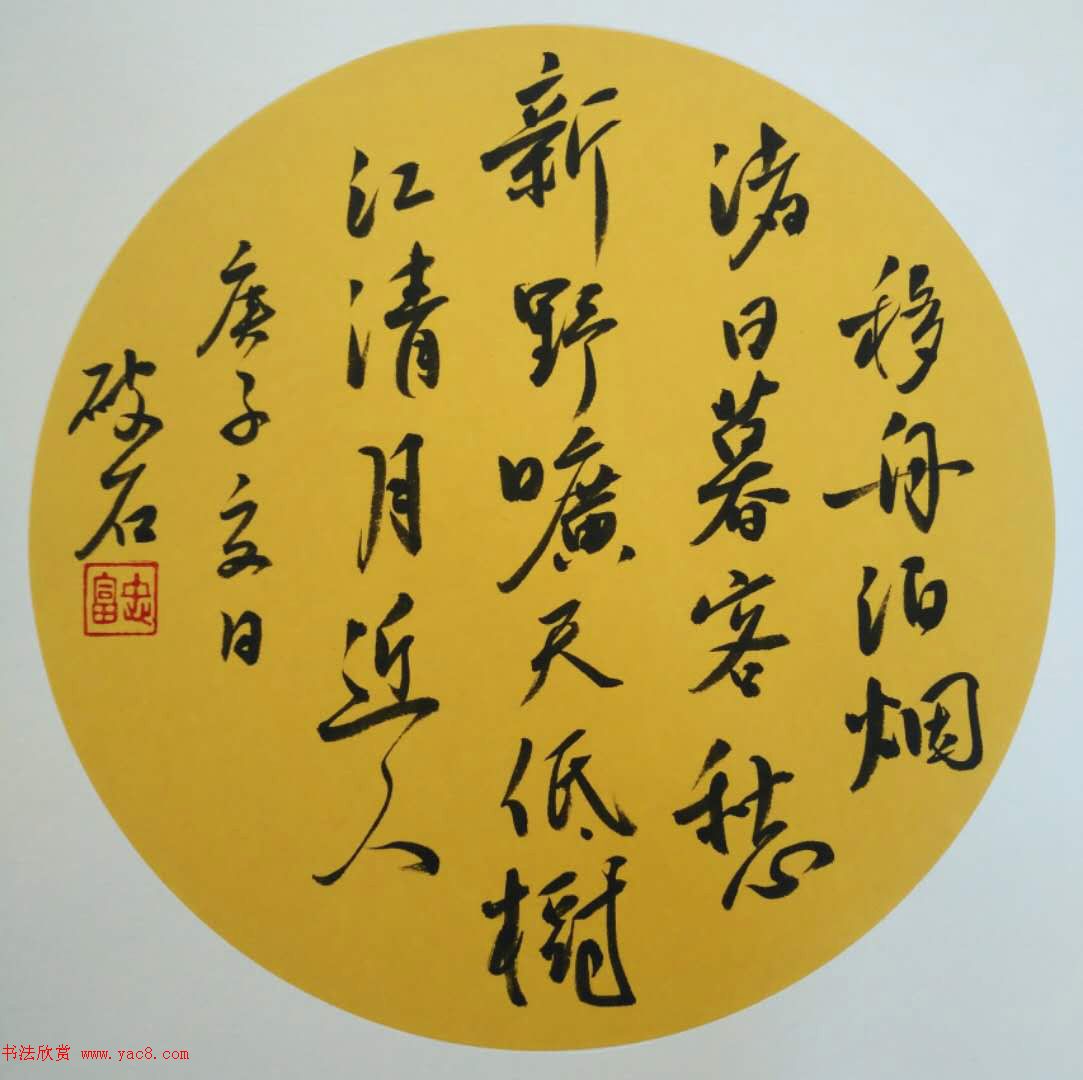 移舟泊烟
渚日暮客愁
新野曠天低樹
江清月近人
庚子夏日
破石
忠富
书法欣赏 www.yac8.com